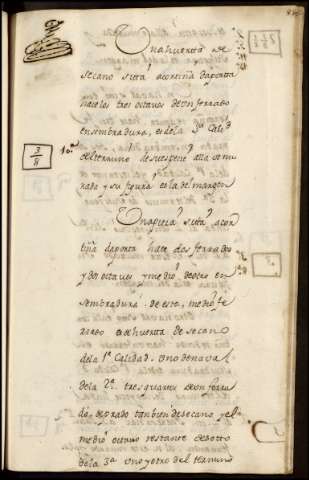 Una huerta de
secano sita acortiña daporta
hace los tres octavos de un ferrado
en sembradura, es de la 3ª Calid
3/8
10ª
el termino de suerte alla se mu
rado y su figura es la del margen
Una pieza sita acor
tiña daporta hace dos ferrados
y dos octavos y medio de otro en
sembradura de este, medio fe
rrado es de huerta de secano
de la 1ª Calidad. Uno de naval
de la 2ª tres quartos de un ferra
do, de prado tambien de secano, y el
medio octavo restante de soto
de la 3ª uno y otro del termino